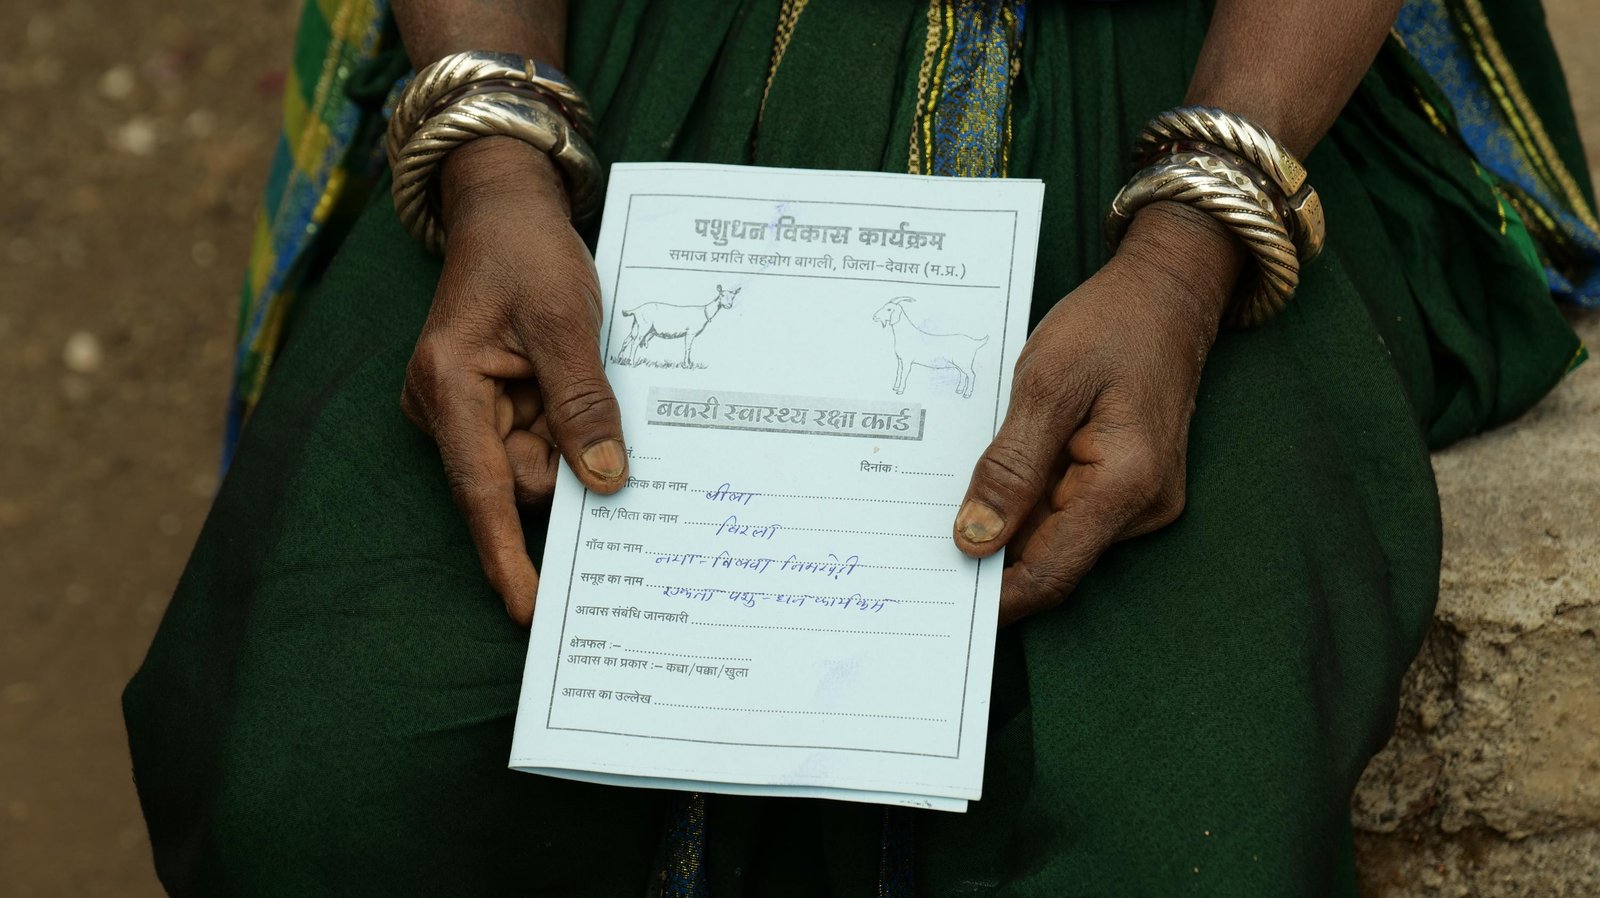 पशुधन विकास कार्यक्रम
समाज प्रगति सहयोग बागली, जिला-देवास (म.प्र.)
बकरी स्वास्थ्य रक्षा कार्ड
नं. ......
दिनांक : ............
लिक का नाम
पति/पिता का नाम
गाँव का नाम नया-
समूह का नाम एकता पशु-धन कार्यक्रम
आवास संबंधि जानकारी
क्षेत्रफल :–
आवास का प्रकार :– कच्चा/पक्का/खुला
आवास का उल्लेख